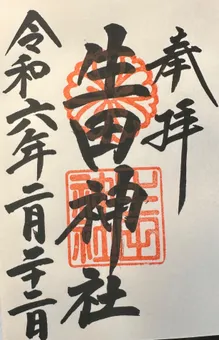 奉拝
生田神社
令和六年二月二十二日